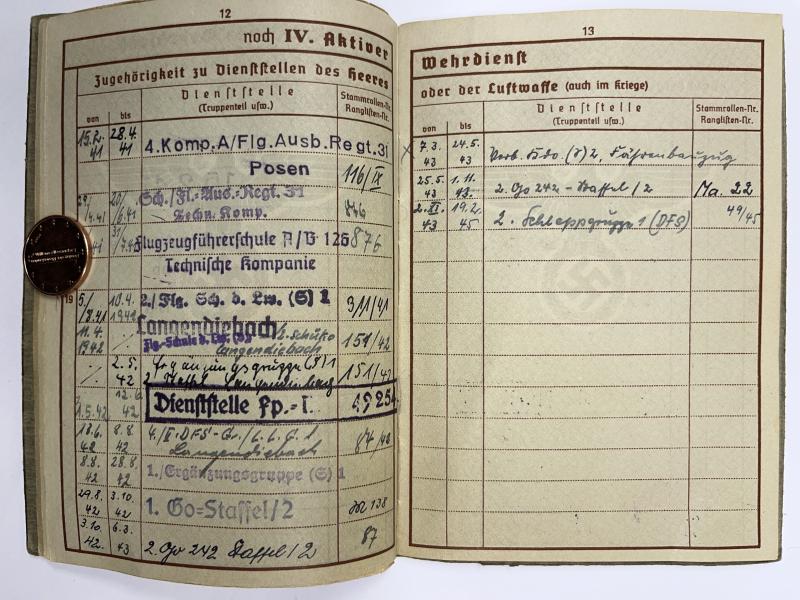 12
noch IV. Aktiver
Zugehörigkeit zu Dienststellen des Heeres
von bis
Dienststelle
(Truppenteil usw.)
Stammrollen-Nr.
Ranglisten-Nr.
15.2. 41 28.4. 41
4. Komp. A/Flg. Ausb. Regt. 31
Posen
116/IX
Sch./Fl.-Aus.-Regt. 31
Techn. Komp.
846
Flugzeugführerschule A/B 126
876
Technische Kompanie
19
10.4. 1942
2./Flg. Sch. d. Lw. (S) 1
3/11/41
11.4. 1942
Langendiebach
Langendiebach
151/42
2.5. 42
Ergänzungsgruppe (S) 1
2. Staffel Langendiebach
151/42
1.5.42 12.6. 42
Dienststelle Fp.-
4925
18.6. 42 8.8. 42
4./II. DFS-Gr./L.L.G. 1
Langendiebach
84/42
8.8. 42 28.8. 42
1./Ergänzungsgruppe (S) 1
29.8. 42 3.10. 42
1. Go=Staffel/2
138
3.10. 42. 6.3. 43
2. Go 242 Staffel/2
87
13
Wehrdienst
oder der Luftwaffe (auch im Kriege)
von bis
Dienststelle
(Truppenteil usw.)
Stammrollen-Nr.
Ranglisten-Nr.
7.3. 43 24.5. 43
Verb. Kdo. (S) 2, Fährenbauzug
25.5. 43 1.11. 43
2. Go 242 - Staffel/2
Ma. 22
2.XI. 43 19.2. 45
2. Schleppgruppe 1 (DFS)
49/45